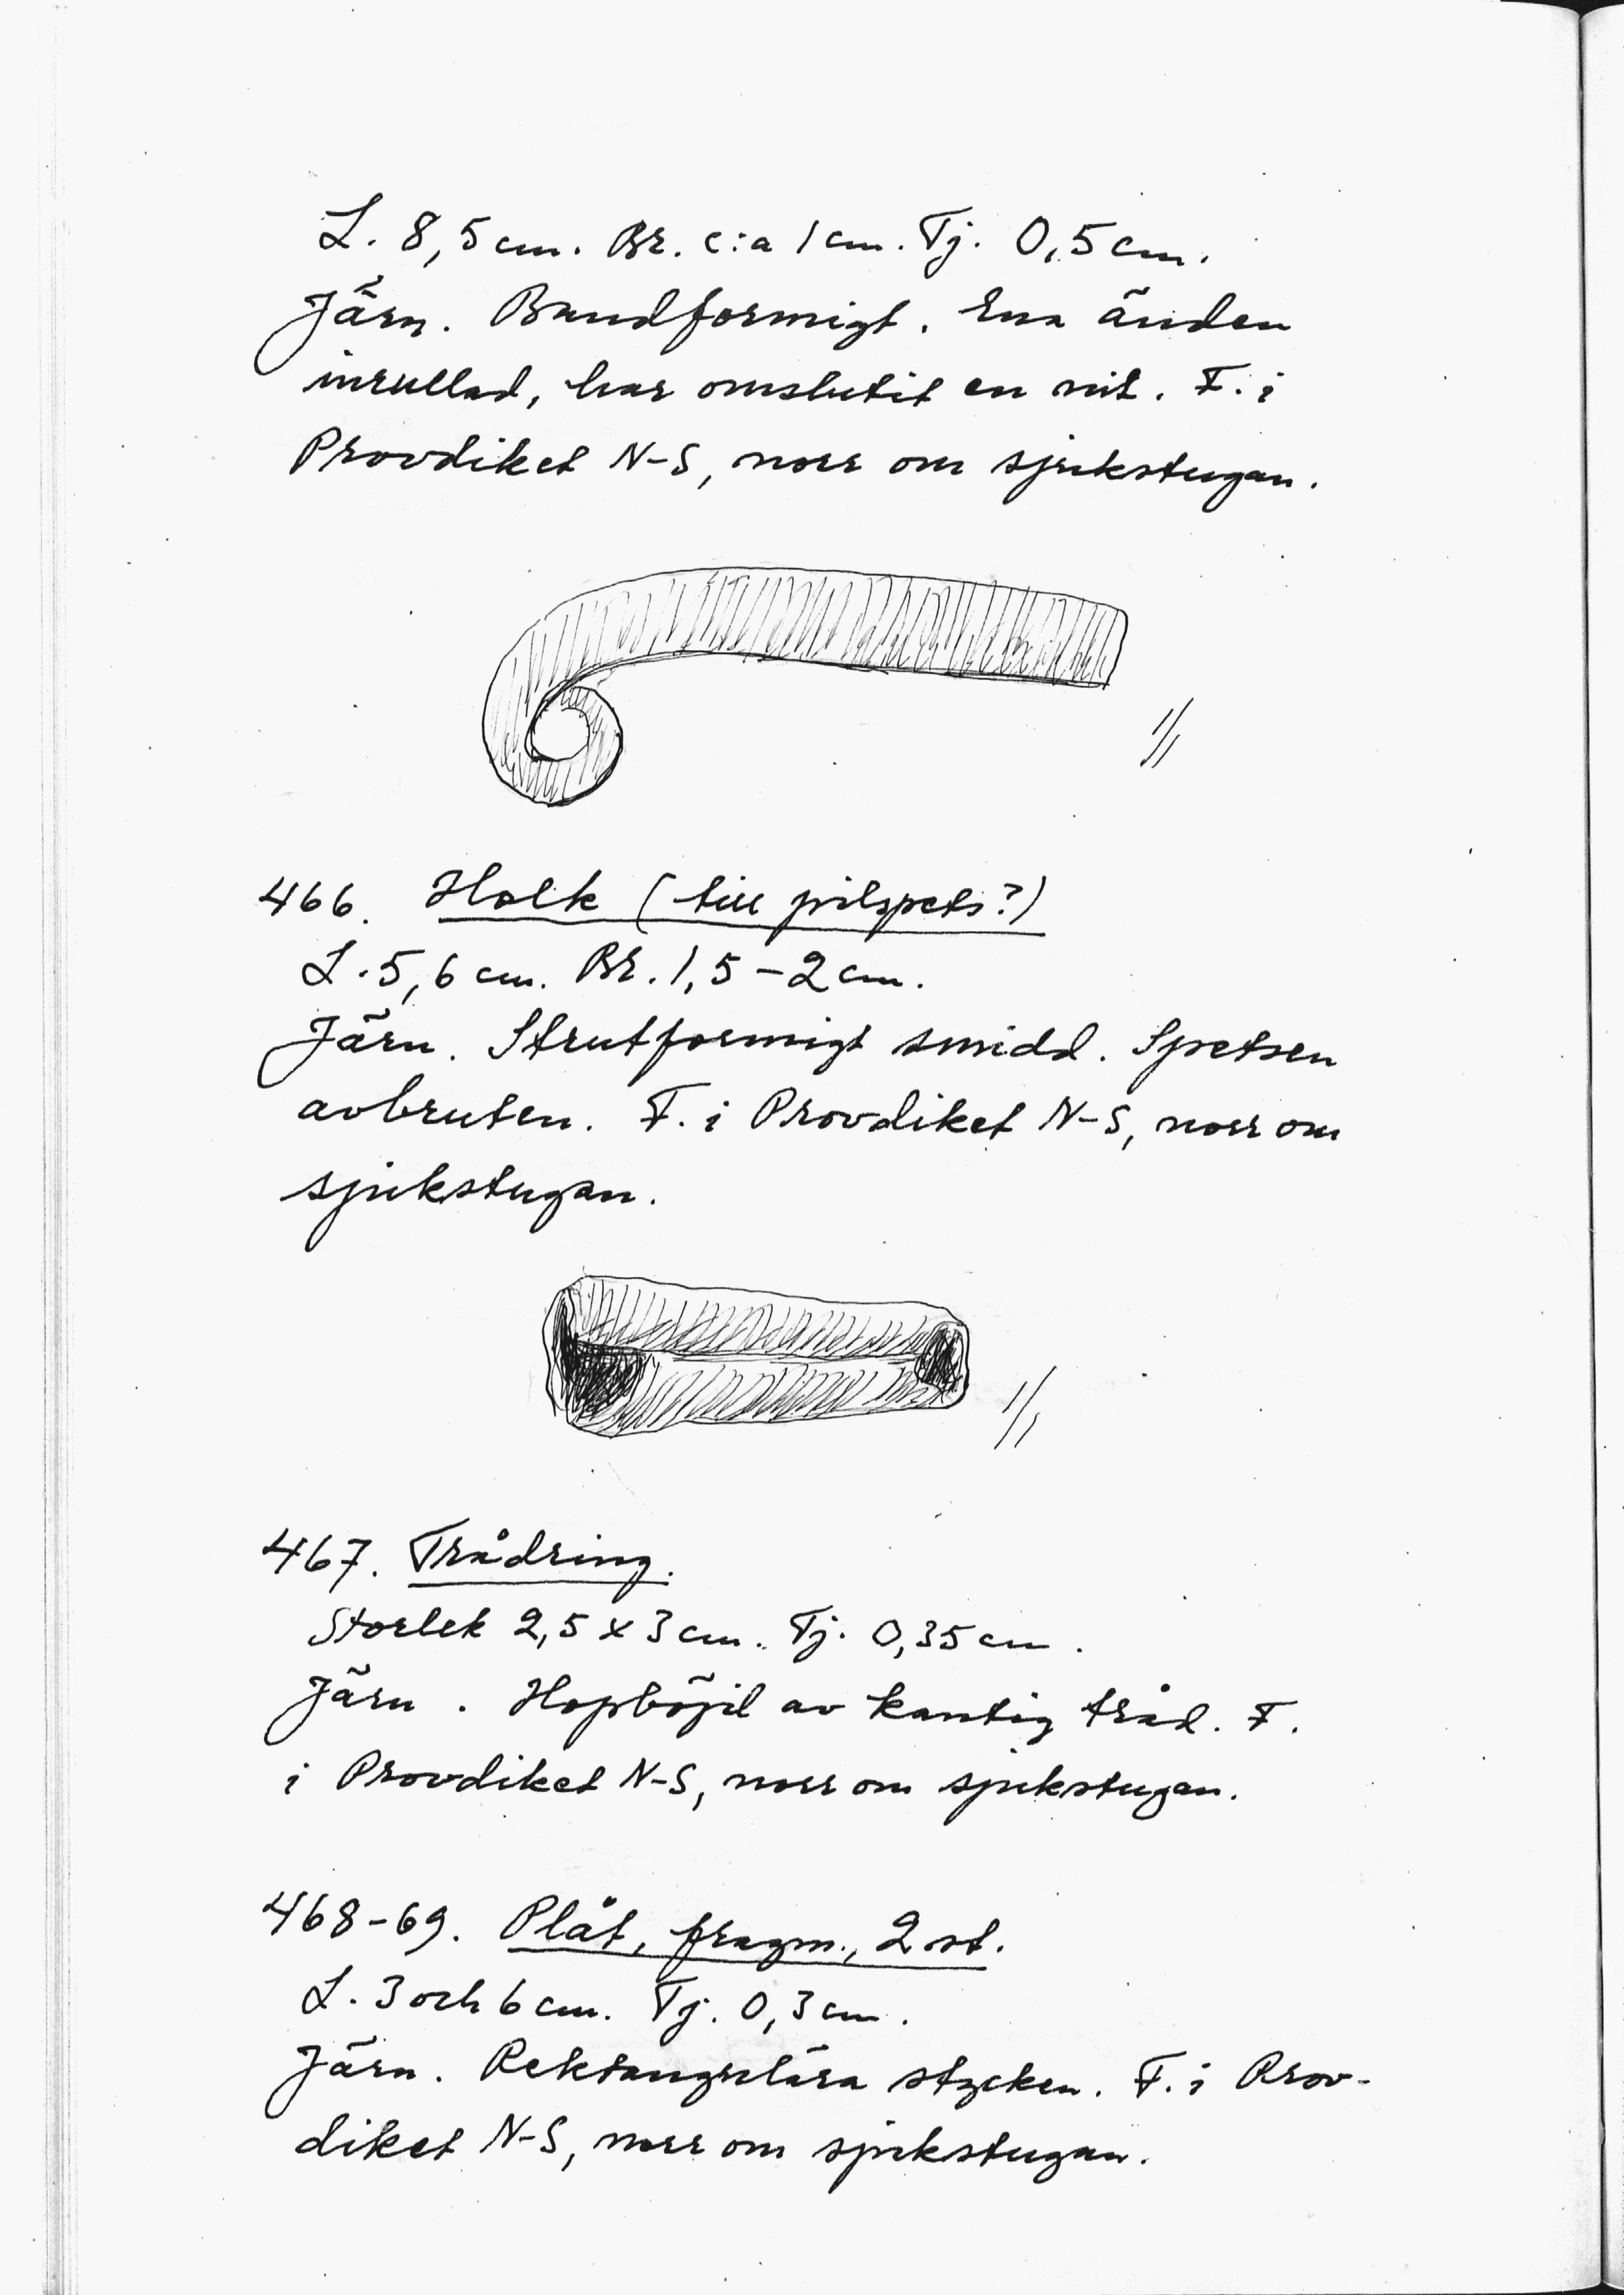 L. 8,5 cm. Br. c:a 1 cm. Tj. 0,5 cm.
Järn. Bandformigt. Ena änden
inrullad, har omslutit en nit. F. i
Provdiket N-S, norr om sjukstugan.
1/1
466. Holk (till pilspets?)
L. 5,6 cm. Br. 1,5-2 cm.
Järn. Strutformigt smidd. Spetsen
avbruten. F. i Provdiket N-S, norr om
sjukstugan.
1/1
467. Trådring.
Storlek 2,5 x 3 cm. Tj. 0,35 cm.
Järn. Hopböjd av kantig tråd. F.
i Provdiket N-S, norr om sjukstugan.
468-69. Plåt, fragm., 2 st.
L. 3 och 6 cm. Tj. 0,3 cm.
Järn. Rektangulära stycken. F. i Prov-
diket N-S, norr om sjukstugan.